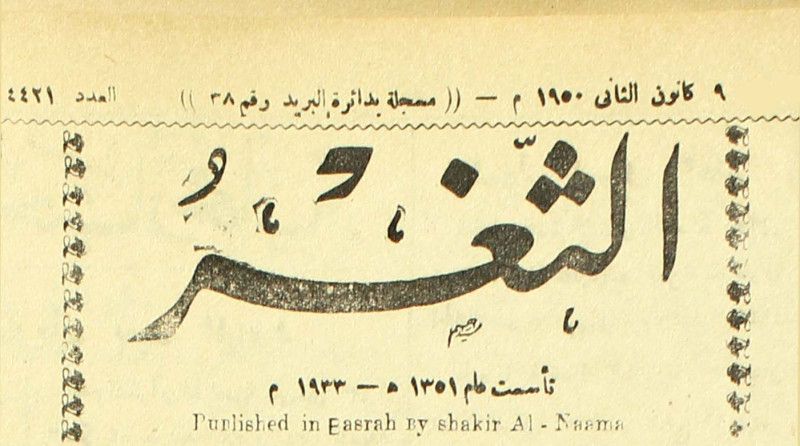 ٩ كانون الثاني ١٩٥٠ م — (( مسجلة بدائرة البريد ورقم ٣٨ )) العدد ٤٤٢١
الثَّغْرُ
رحيم
تأسست عام ١٣٥١ ه — ١٩٣٣ م
Published in Basrah By shakir Al - Naama